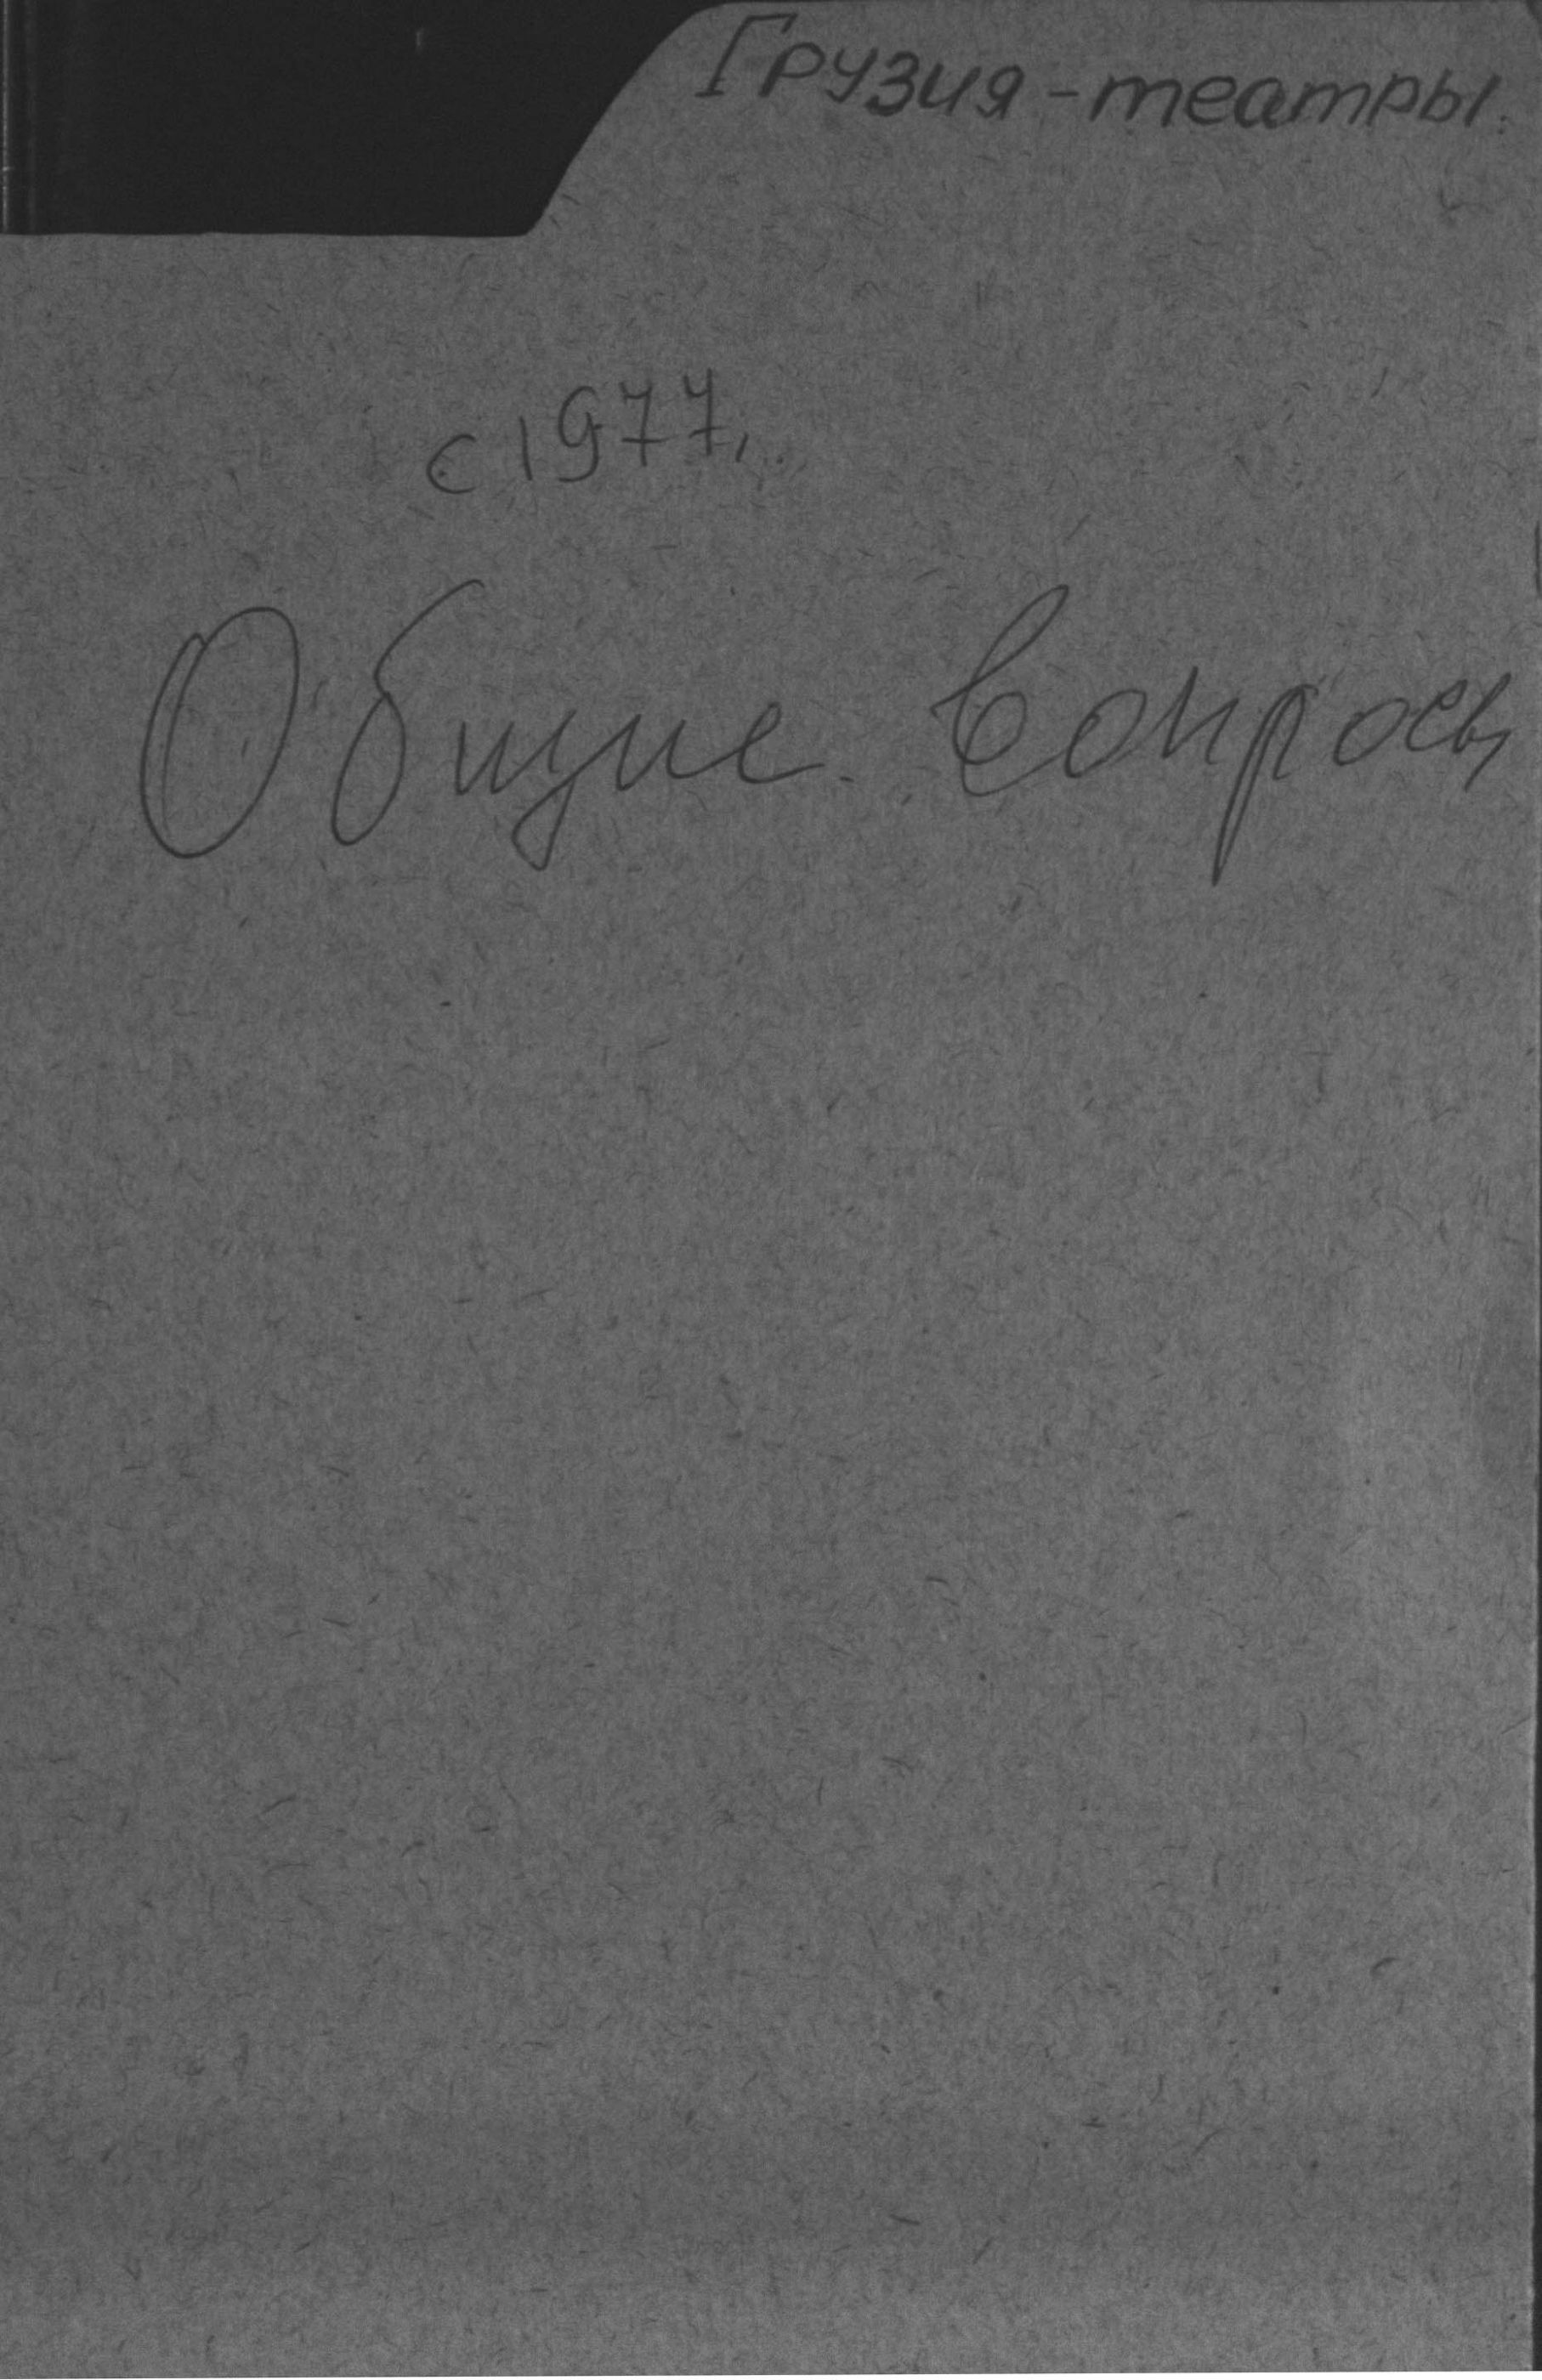 Грузия - театры.
с 1977,
Общие вопросы